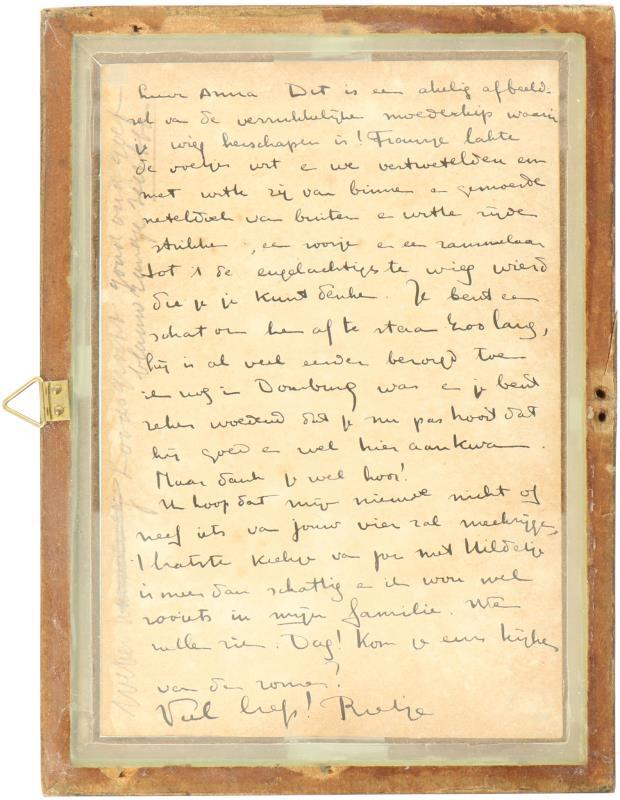 Lieve Anna Dit is een akelig afbeeld-
sel van de verrukkelijke moederschip waarin
wieg herschapen is! Fransje lakte
de voetjes wit en we vertroetelden em
met witte zij van binnen en gemoesde
neteldoek van buiten en witte zijden
strikken, een roosje en een rammelaar
tot 't de engelachtigste wieg wierd
die je je kunt denken. Je bent een
schat om hem af te staan zoo lang,
hij is al veel eerder bezorgd toen
ik nog in Domburg was en je bent
zeker woedend dat je nu pas hoort dat
hij goed en wel hier aankwam.
Maar dank je wel hoor!
Ik hoop dat mijn nieuwe nicht of
neef iets van jouw vier zal meekrijgen,
't laatste kiekje van jou met Hildetje
is meer dan schattig en ik wou wel
zooiets in mijn familie. We
zullen zien. Dag! Kom je eens kijken
van den zomer?
Veel liefs! Rietje